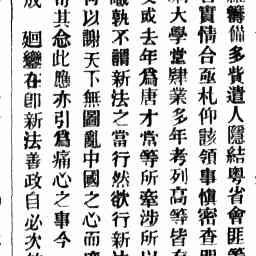 羅籌備多貲遣人隱結粵省會匪等
皆實情合亟札仰該領事愼密查明
大學堂肄業多年考列高等皆有
或去年爲唐才常等所牽涉所以
孰不謂新法之當行然欲行新法
何以謝天下無圖亂中國之心而
苟其念此應亦引爲痛心之事今
成　迴鑾在卽新法善政自必次第